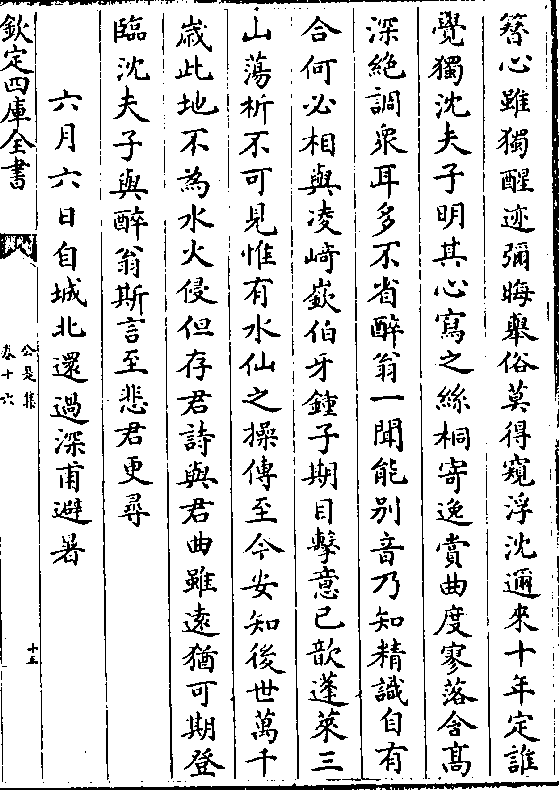 簮心雖獨醒迹彌晦舉俗莫得窺浮沈邇來十年定誰
覺獨沈夫子明其心寫之絲桐寄逸賞曲度寥落含髙
深絶調衆耳多不省醉翁一聞能别音乃知精識自有
合何必相與凌﨑嶔伯牙鍾子期目擊意已歆蓬萊三
山蕩析不可見惟有水仙之操傳至今安知後世萬千
歳此地不為水火侵但存君詩與君曲雖遠猶可期登
臨沈夫子與醉翁斯言至悲君更尋
六月六日自城北還過深甫避暑
欽定四庫全書
公是集
卷十六
十五